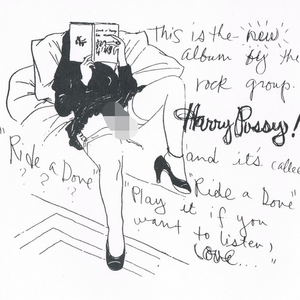 This is the new
album by the
rock group
Harry Pussy!
and it's called
"Ride a Dove"
? ? ?
"Ride a Dove"
"Play it if you
want to listen,
love..."